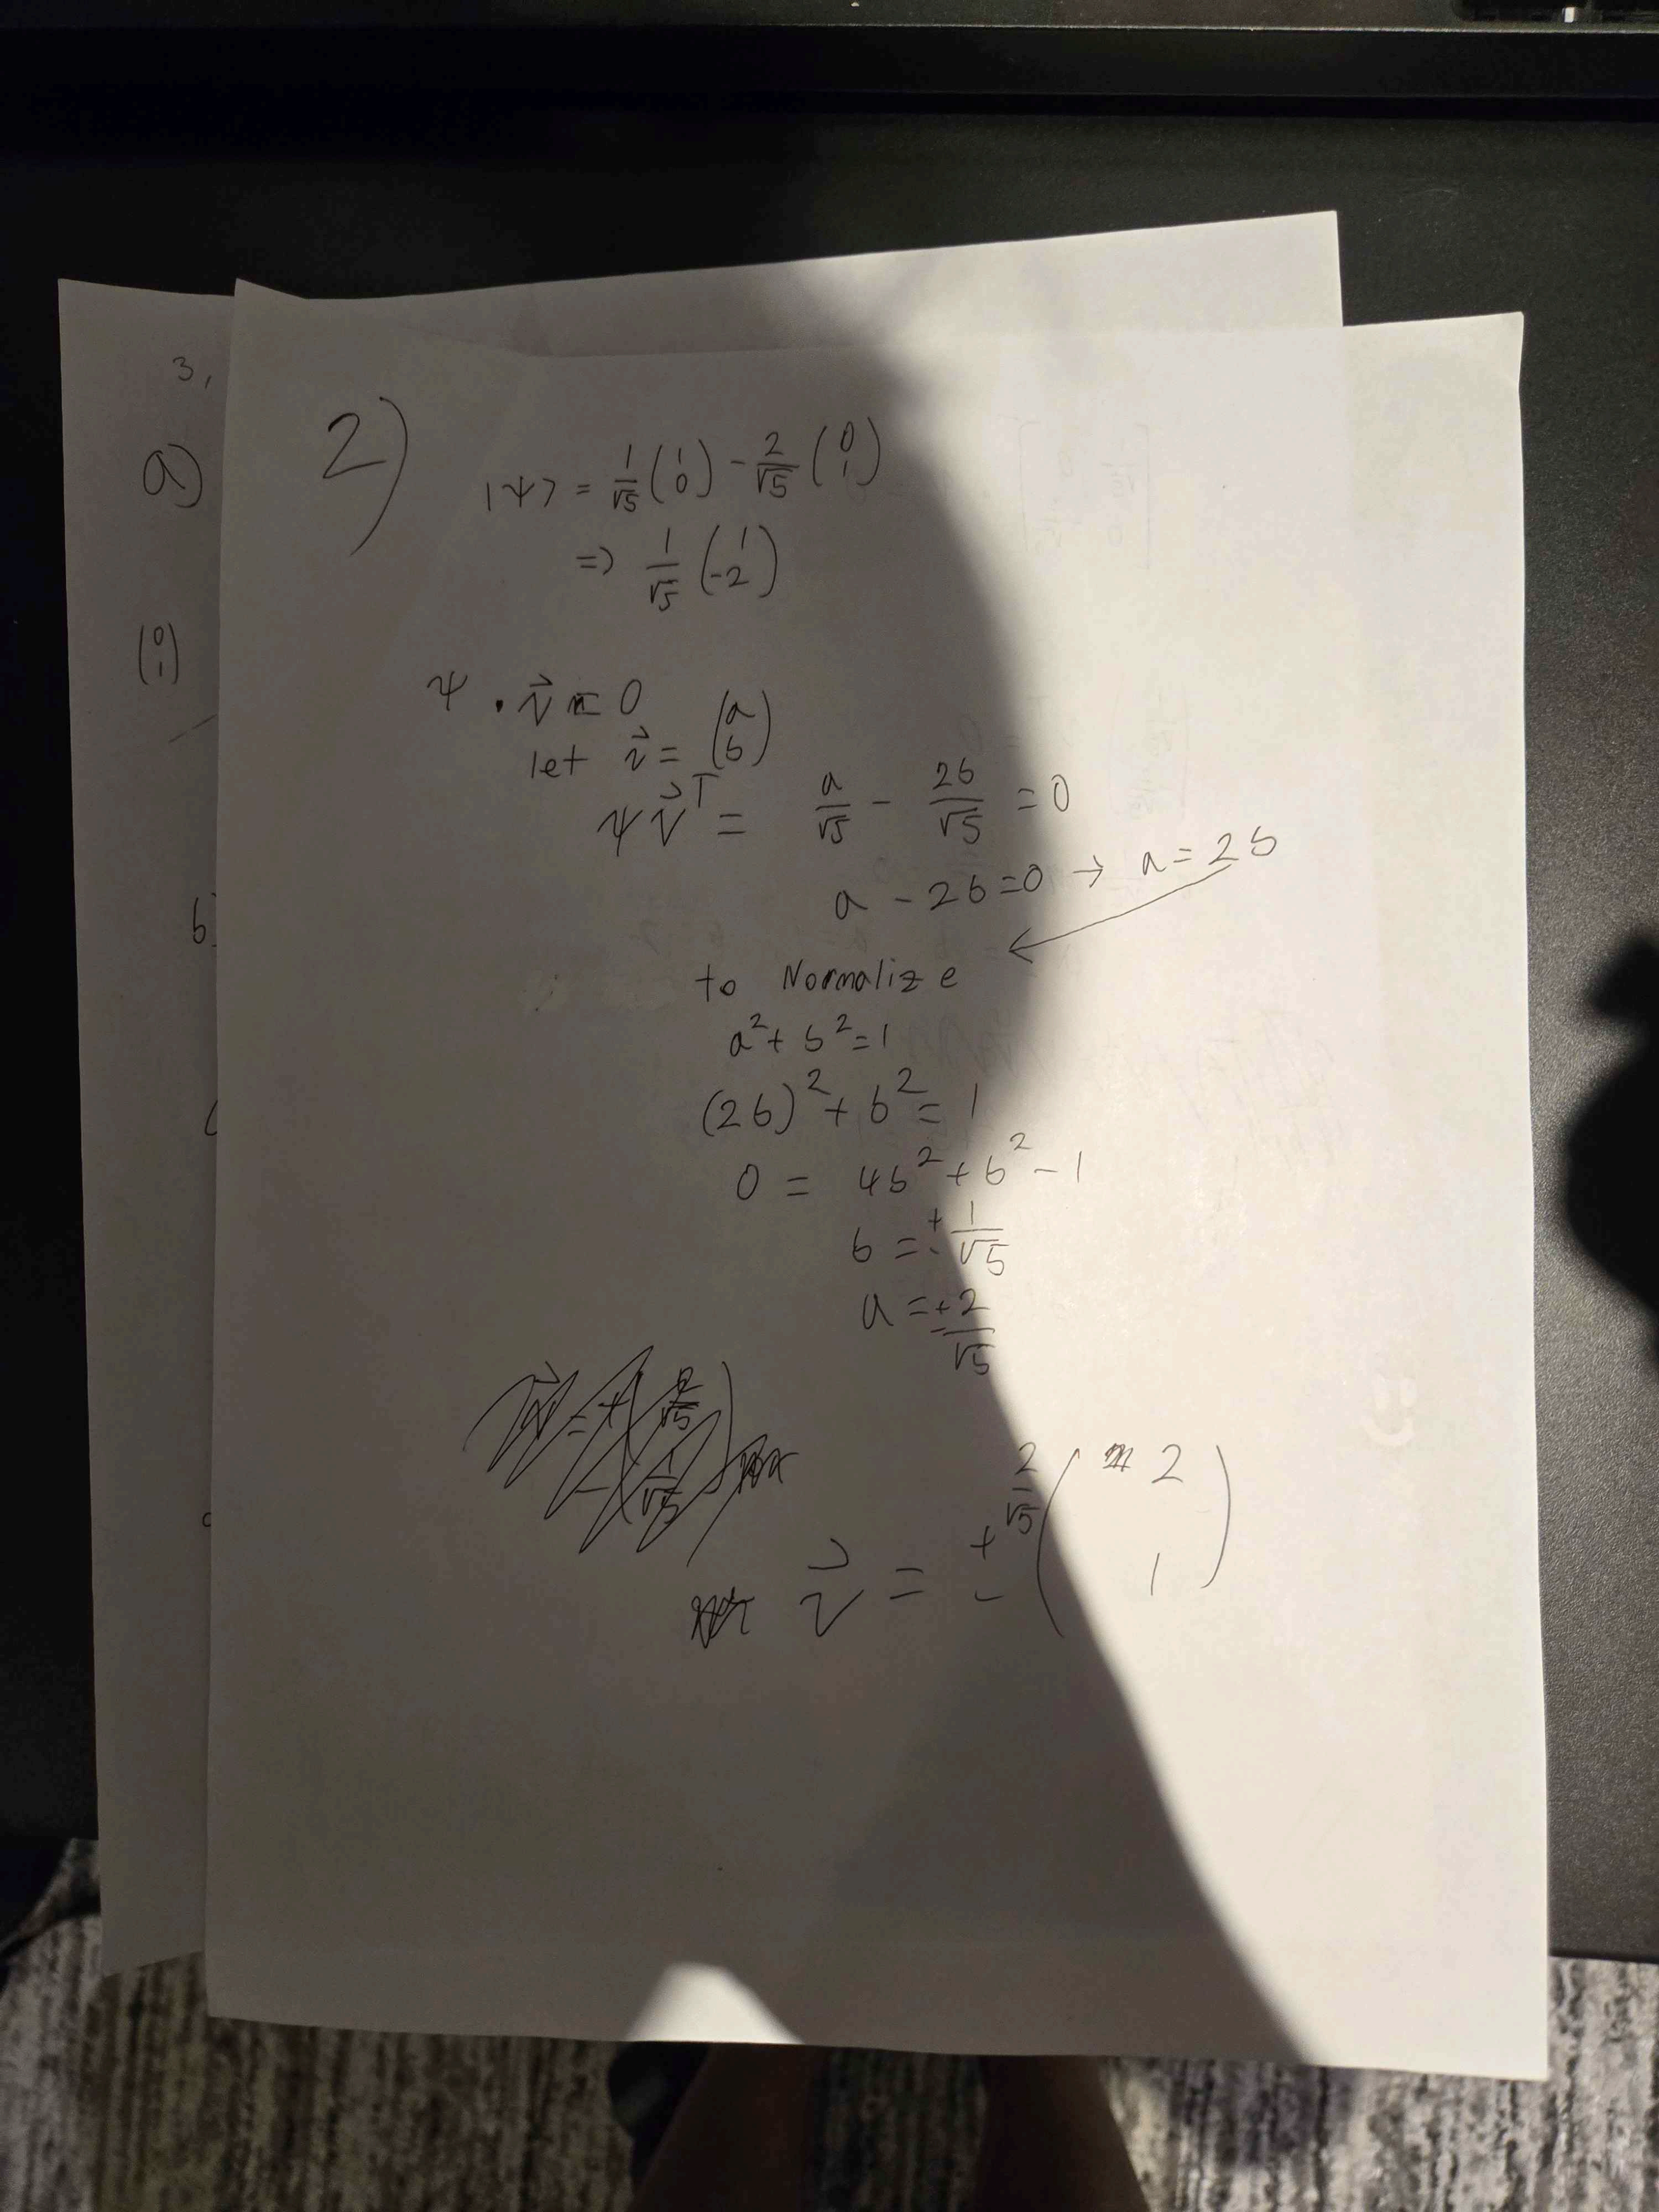 3,
a)
(0 1)
b)
2)
|ψ> = 1/√5 (1 0) - 2/√5 (0 1)
=> 1/√5 (1 -2)
ψ · v⃗ = 0
let v⃗ = (a b)
ψ v⃗ᵀ = a/√5 - 2b/√5 = 0
a - 2b = 0 → a = 2b
to Normalize
a² + b² = 1
(2b)² + b² = 1
0 = 4b² + b² - 1
b = ± 1/√5
a = ± 2/√5
v⃗ = ± 2/√5 (2 1)